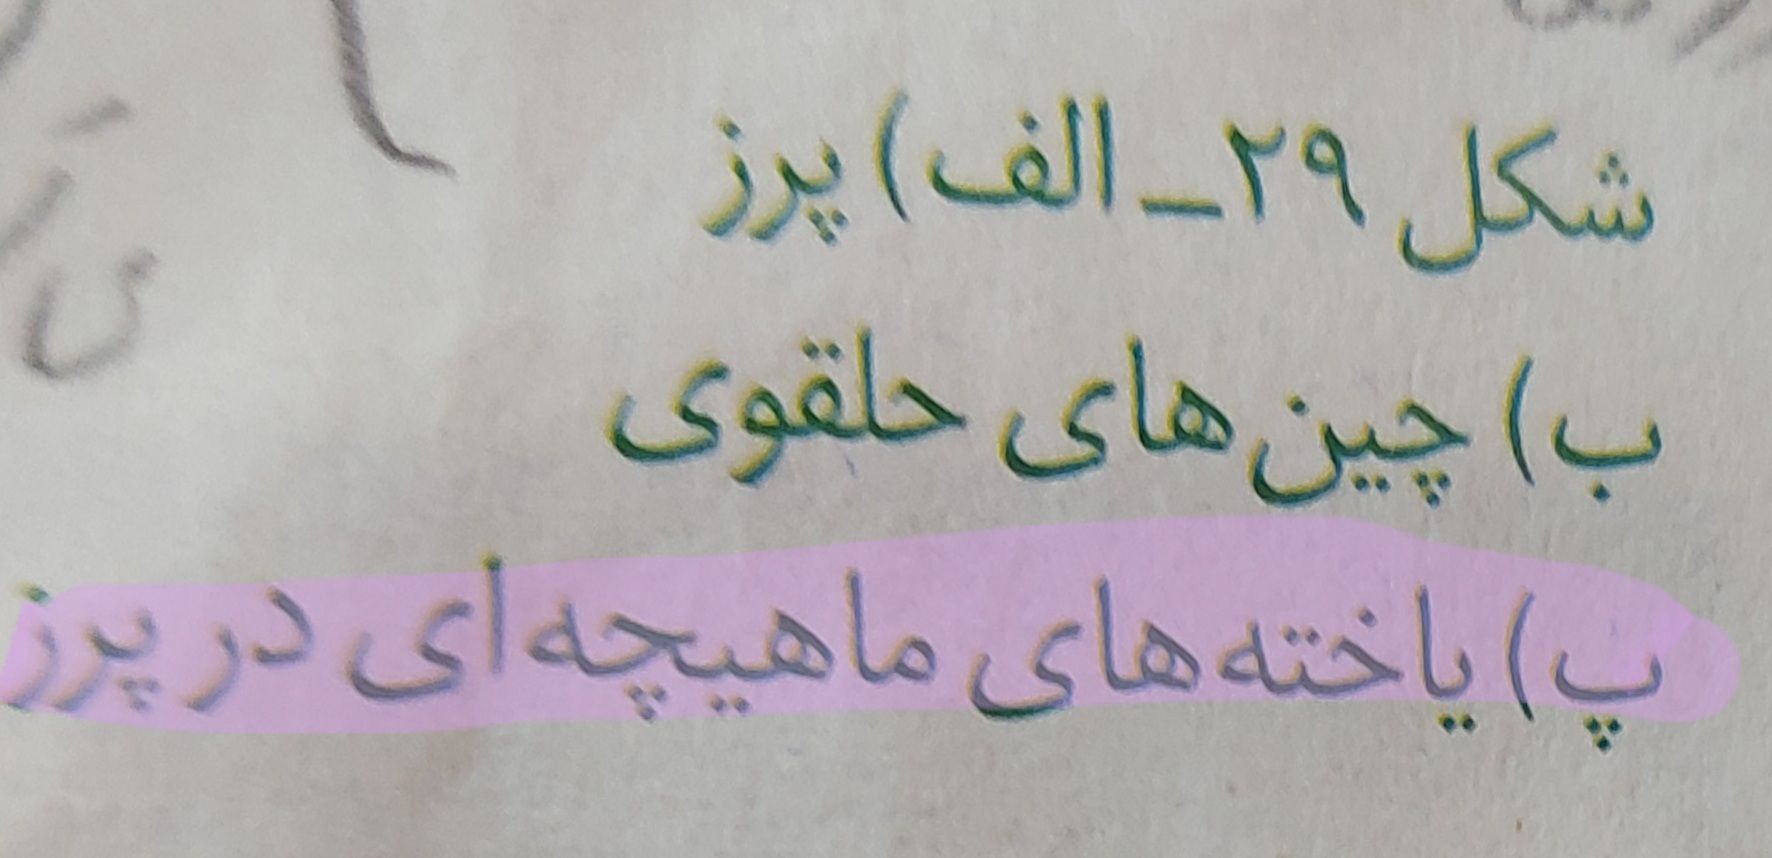 شکل ۲۹ــ الف) پرز
ب) چین‌های حلقوی
پ) یاخته‌های ماهیچه‌ای در پرز